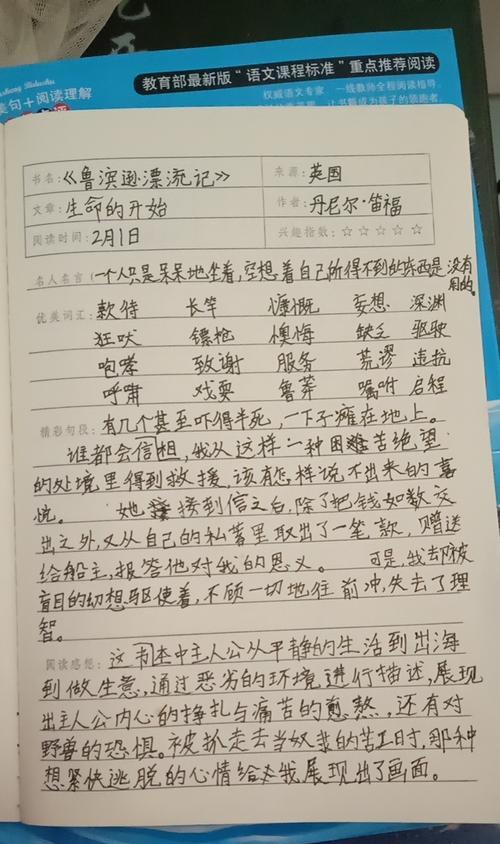 美句+阅读理解
教育部最新版“语文课程标准”重点推荐阅读
权威语文专家 一线教师全程阅读指导,
书名:《鲁滨逊漂流记》 来源:英国
文章:生命的开始 作者:丹尼尔·笛福
阅读时间:2月1日 兴趣指数:☆☆☆☆☆
名人名言(一个人只是呆呆地坐着,空想着自己所得不到的东西是没有用的。
优美词汇: 款待 长竿 慷慨 妄想 深渊
狂吠 镖枪 懊悔 缺乏 驱驶
咆哮 致谢 服务 荒谬 违抗
呼啸 戏耍 鲁莽 嘱咐 启程
精彩句段:有几个甚至吓得半死,一下子瘫在地上。
谁都会信相,我从这样一种困难苦绝望
的处境里得到救援,该有怎样说不出来的喜
悦。 她接到信之后,除了把钱如数交
出之外,又从自己的私蓄里取出了一笔款,赠送
给船主,报答他对我的恩义。 可是,我却被
盲目的幻想驱使着,不顾一切地往前冲,失去了理
智。
阅读感想:这书本中主人公从平静的生活到出海
到做生意,通过恶劣的环境进行描述,展现
出主人公内心的挣扎与痛苦的煎熬,还有对
野兽的恐惧。被抓走去当奴隶的苦工时,那种
想紧快逃脱的心情给我展现出了画面。